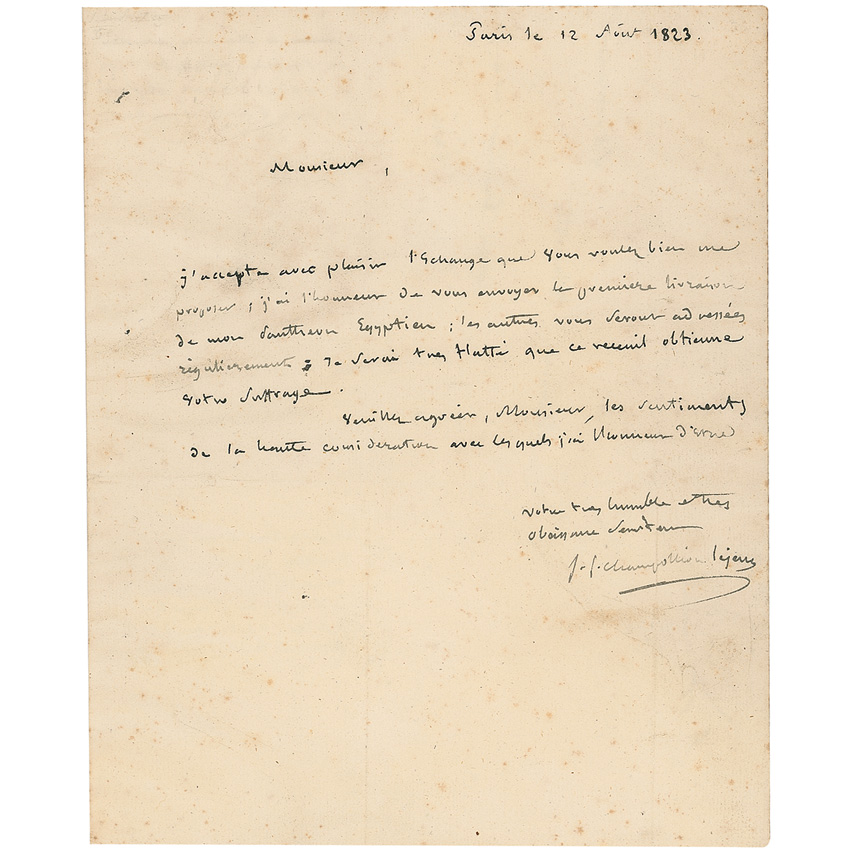 Paris le 12 Août 1823.
Monsieur,
j'accepte avec plaisir l'Echange que vous voulez bien me
proposer ; j'ai l'honneur de vous envoyer la première livraison
de mon Panthéon Egyptien ; les autres vous seront adressées
régulièrement ; Je serai très flatté que ce receuil obtienne
votre suffrage.
Veuillez agréer, Monsieur, les sentiments
de la haute consideration avec lesquels j'ai l'honneur d'Etre
votre très humble et très
obeissant serviteur
J.-f. champollion le jeune